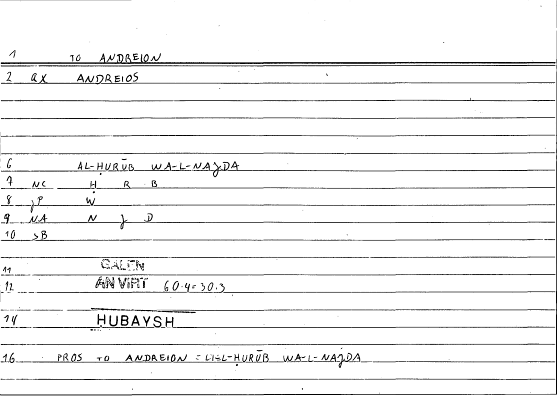 1 TO ANDREION
2 QX ANDREIOS
6 AL-ḤURŪB WA-L-NAJDA
7 NC Ḥ R B
8 JP W
9 NA N J D
10 >B
11 GALEN
12 AN VIRT 60.4=30.3
14 HUBAYSH
16 PROS TO ANDREION = LI-L-ḤURŪB WA-L-NAJDA